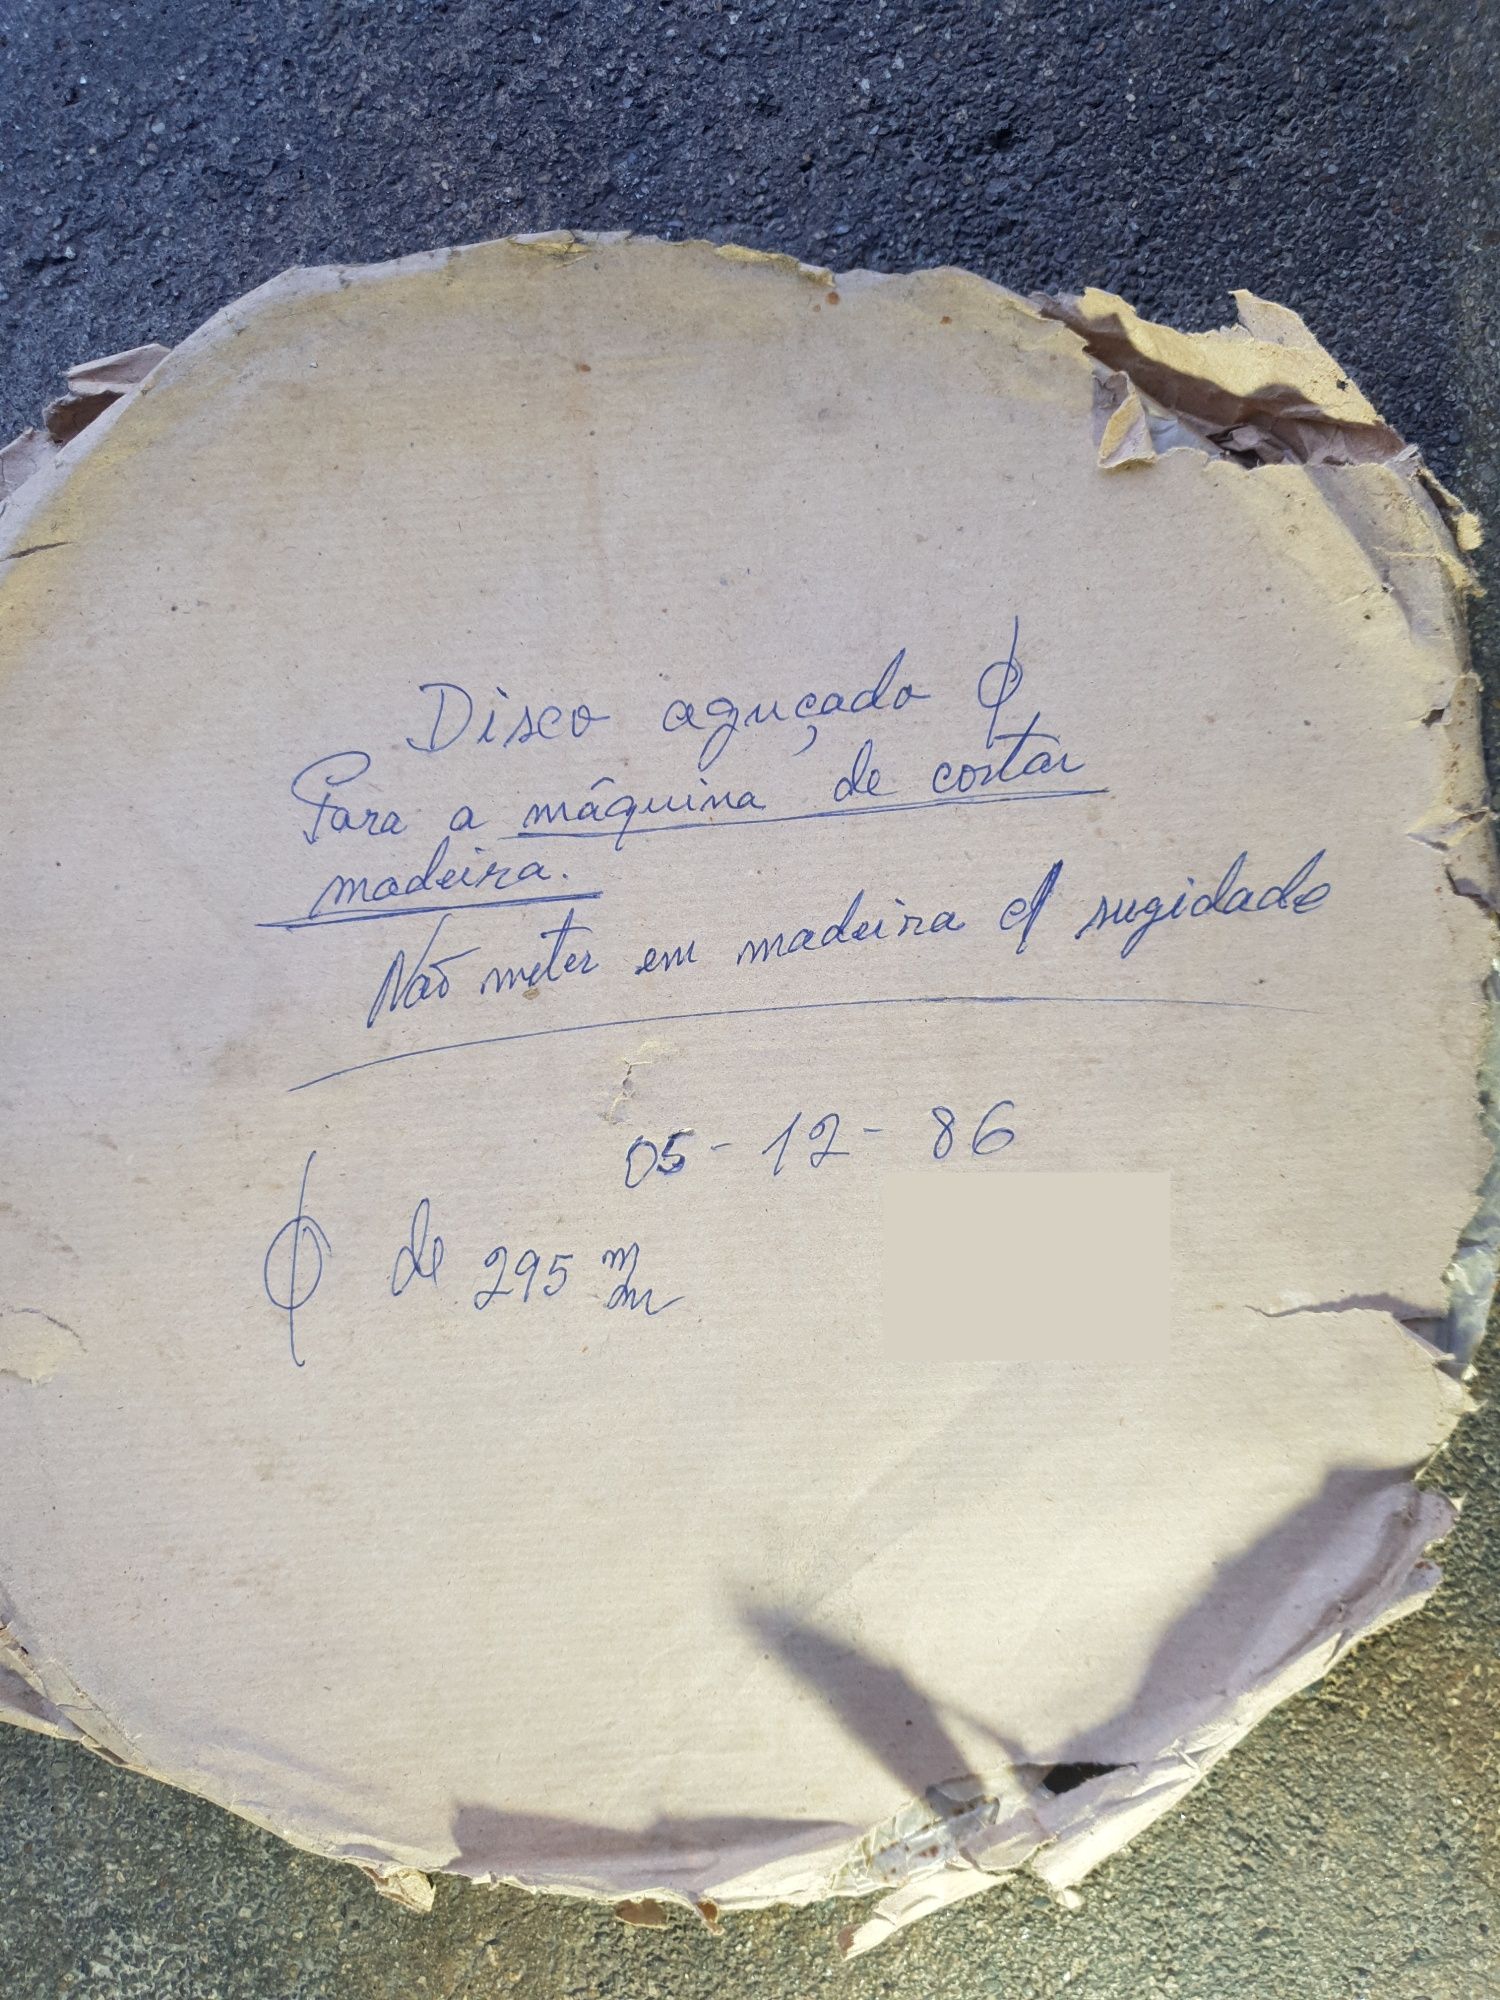 Disco aguçado ϕ
Para a mâquina de cortar
madeira.
Não meter em madeira c/ sugidade
05 - 12 - 86
ϕ de 295 m/m